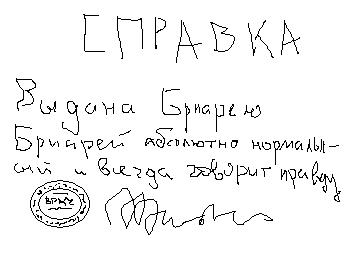 СПРАВКА
Выдана Бриарею
Бриарей абсолютно нормаль-
ный и всегда говорит правду
ВРМУ